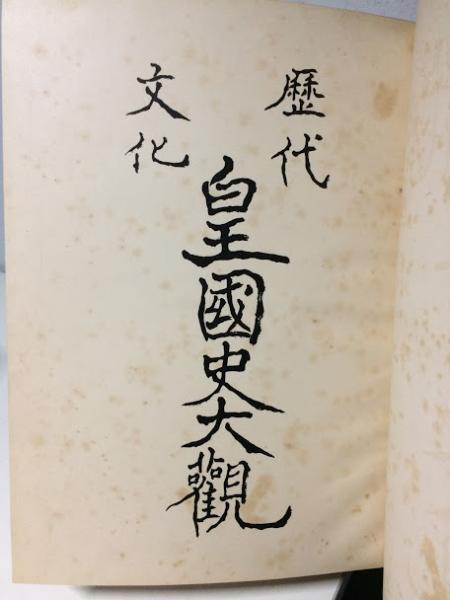 歷代
文化
皇國史大觀